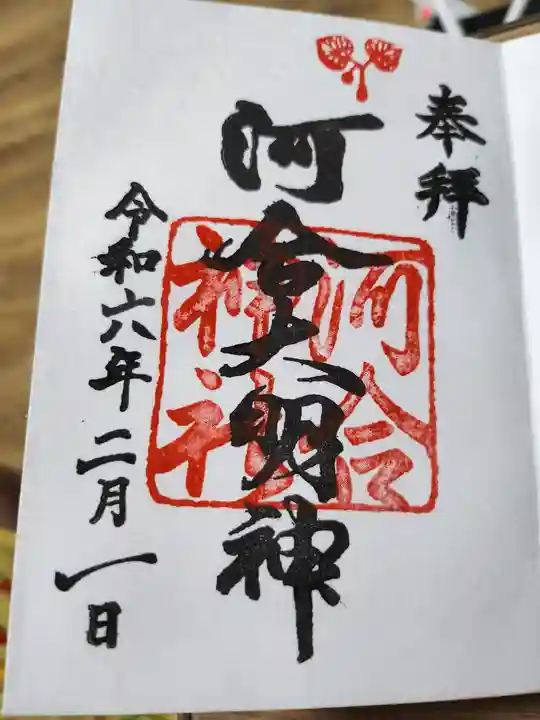 奉拝
河合大明神
河合神社
令和六年二月一日